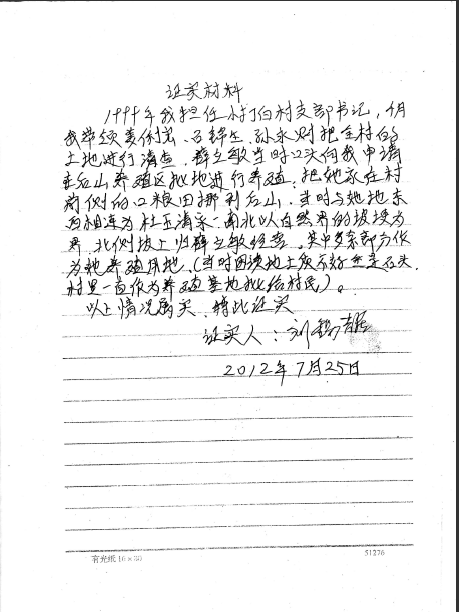 证实材料
1999年我担任 村伯村支部书记，4月
我带领姜保宏、孙永财把全村的
土地进行清查，薛立敏当时口头向我申请
在后山养殖区批地进行养殖，把她家在村
前侧的口粮田挪到后山，当时与她地东
西相连为杜玉清家，南北以自然界的坡埂为
界，北侧坡上归薛立敏经营，其中多余部分作
为她养殖用地，（当时因该地土质不好都是石头，
村里一直作为养殖基地批给村民）。
以上情况属实，特此证实
证实人：刘
2012年7月25日
有光纸16×
51276